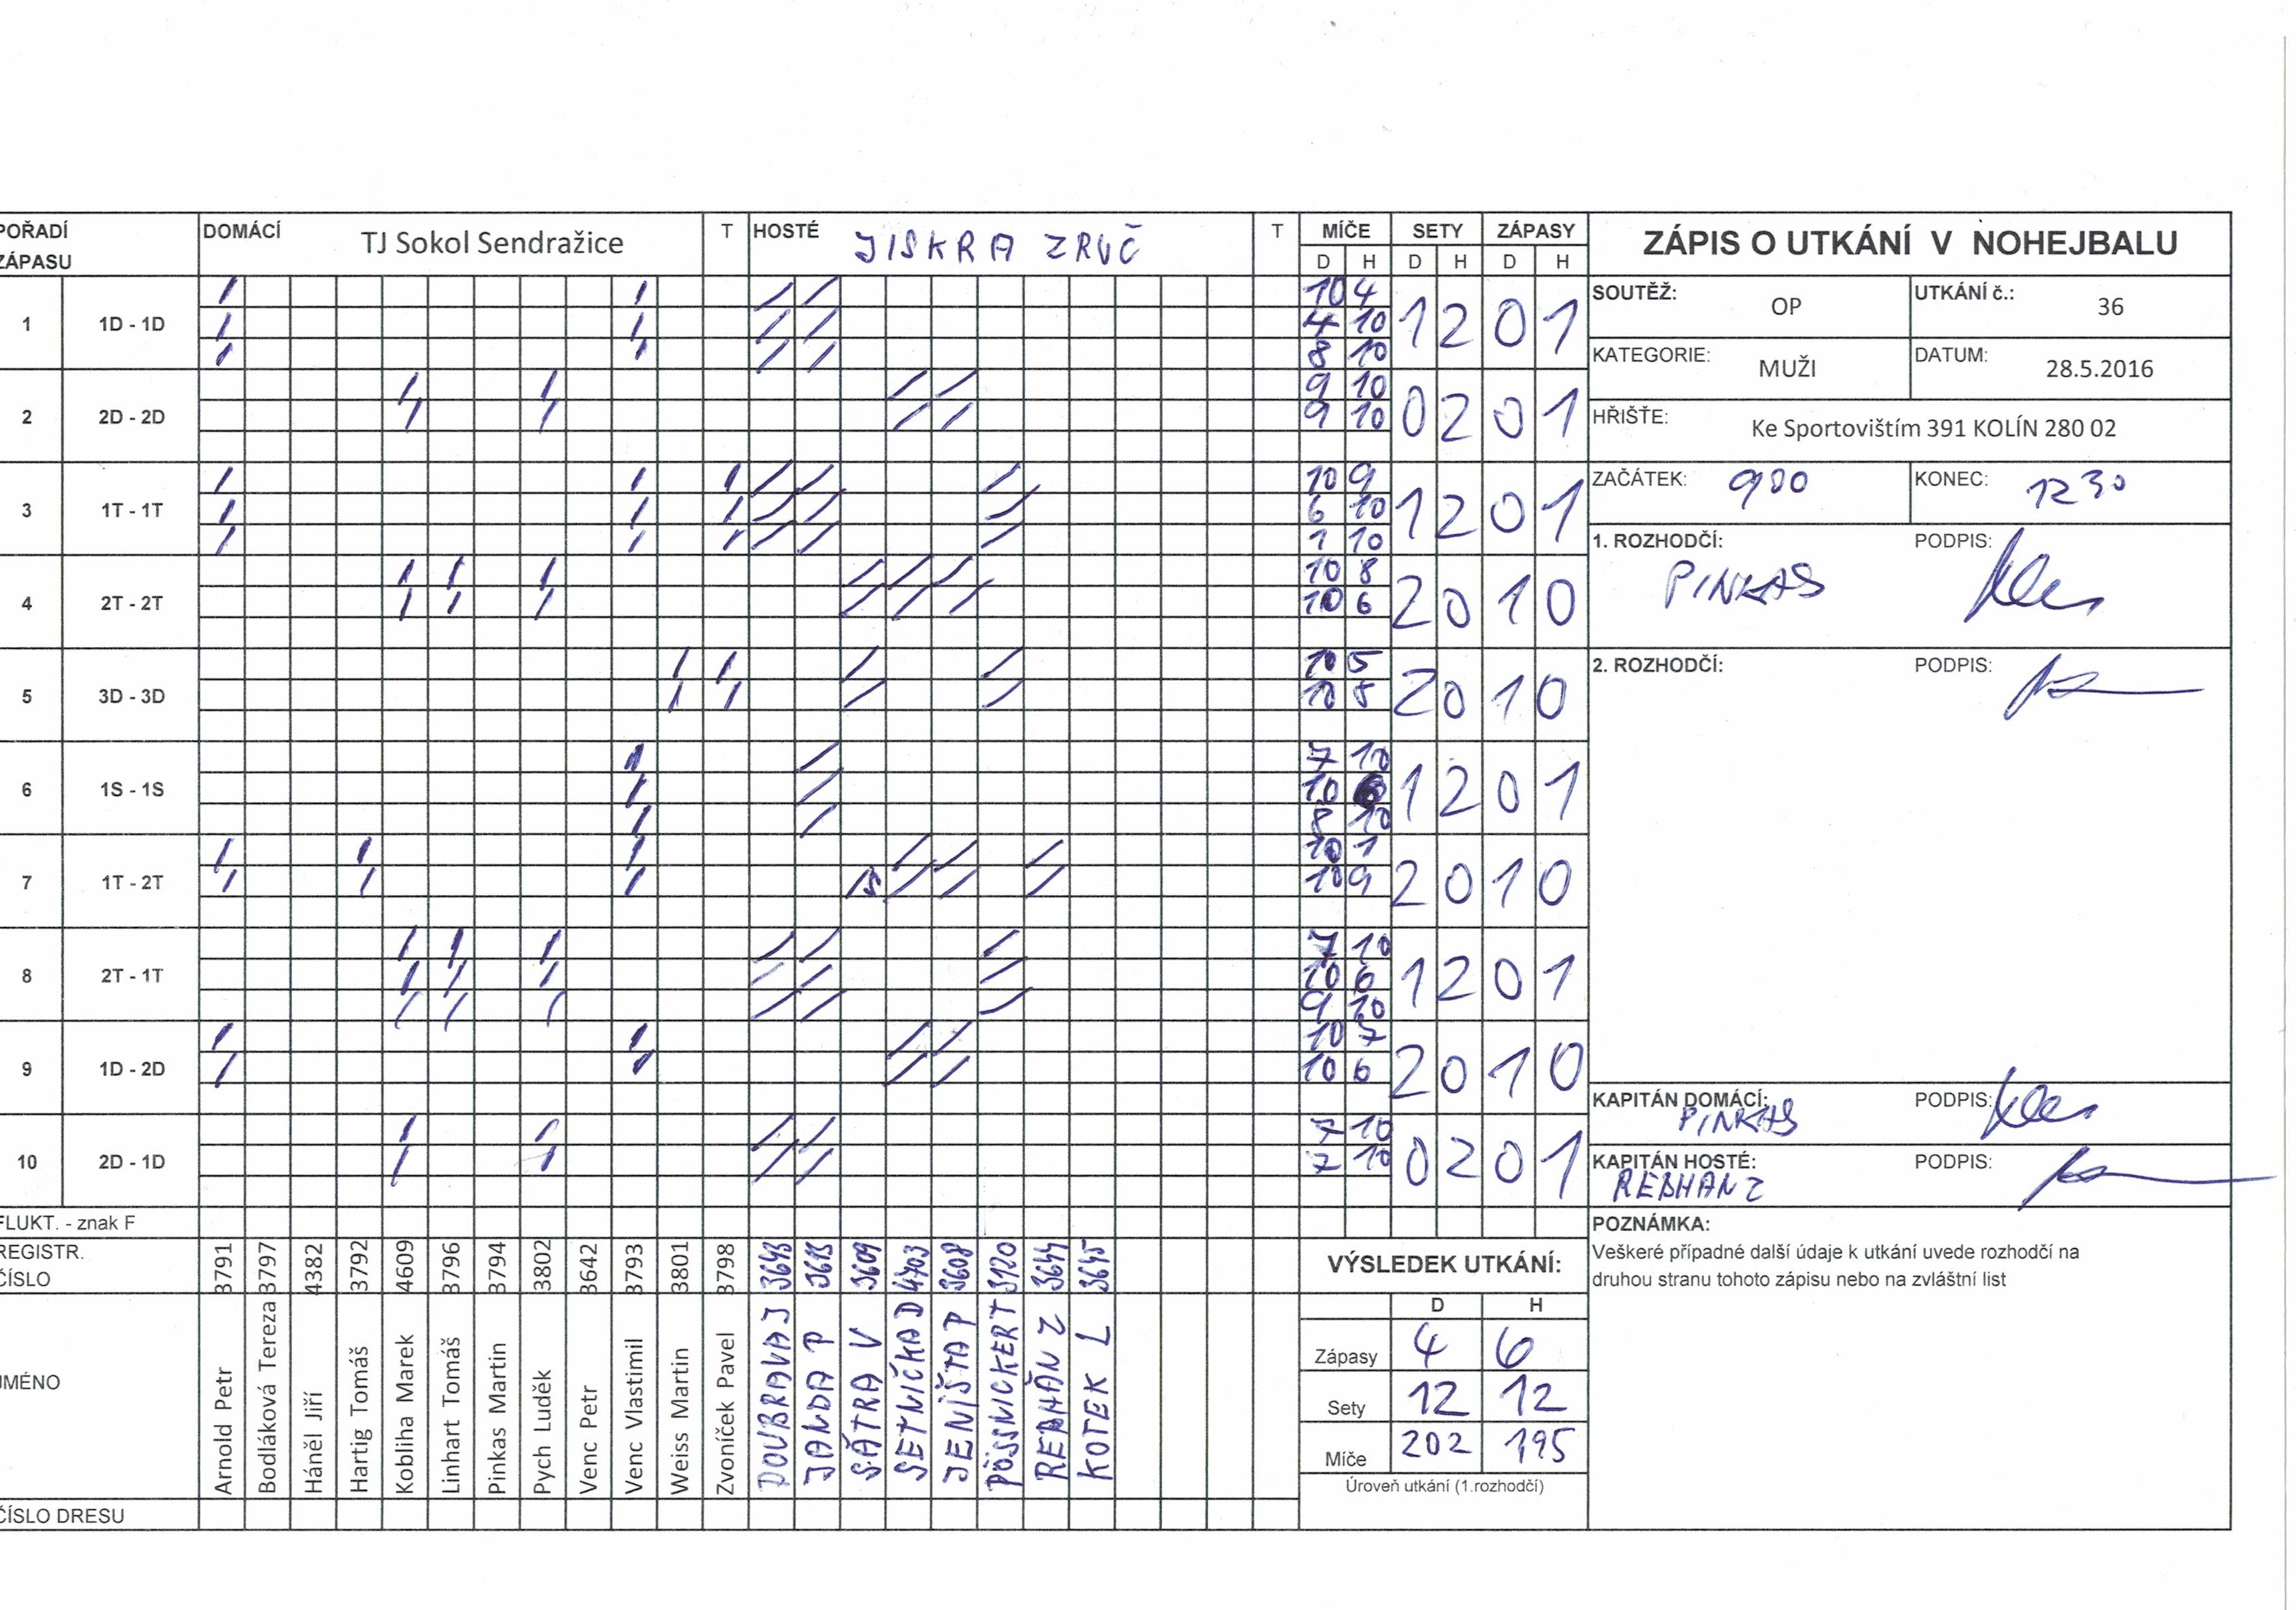 POŘADÍ ZÁPASU DOMÁCÍ TJ Sokol Sendražice T HOSTÉ JISKRA ZRUČ T MÍČE SETY ZÁPASY
D H D H D H
1 1D - 1D 10 4 1 2 0 1
4 10
8 10
2 2D - 2D 9 10 0 2 0 1
9 10
3 1T - 1T 10 9 1 2 0 1
6 10
1 10
4 2T - 2T 10 8 2 0 1 0
10 6
5 3D - 3D 10 5 2 0 1 0
10 8
6 1S - 1S 7 10 1 2 0 1
10 6
8 10
7 1T - 2T 10 1 2 0 1 0
10 9
8 2T - 1T 7 10 1 2 0 1
10 6
9 10
9 1D - 2D 10 7 2 0 1 0
10 6
10 2D - 1D 7 10 0 2 0 1
7 10
FLUKT. - znak F
REGISTR. ČÍSLO 3791 3797 4382 3792 4609 3796 3794 3802 3642 3793 3801 3798 3643 3609 4703 3608 3120 3644 3645
JMÉNO
Arnold Petr
Bodláková Tereza
Háněl Jiří
Hartig Tomáš
Kobliha Marek
Linhart Tomáš
Pinkas Martin
Pych Luděk
Venc Petr
Venc Vlastimil
Weiss Martin
Zvoníček Pavel
DOUBRAVA J
JANDA P
ŠÁTRA V
SETNIČKA D
JENIŠTA P
PÖSSNICKER T
REBHÁN Z
KOTEK L
ČÍSLO DRESU
VÝSLEDEK UTKÁNÍ:
D H
Zápasy 4 6
Sety 12 12
Míče 202 195
Úroveň utkání (1.rozhodčí)
ZÁPIS O UTKÁNÍ V NOHEJBALU
SOUTĚŽ: OP UTKÁNÍ č.: 36
KATEGORIE: MUŽI DATUM: 28.5.2016
HŘIŠTE: Ke Sportovištím 391 KOLÍN 280 02
ZAČÁTEK: 900 KONEC: 1230
1. ROZHODČÍ: PINKAS PODPIS:
2. ROZHODČÍ: PODPIS:
KAPITÁN DOMÁCÍ: PINKAS PODPIS:
KAPITÁN HOSTÉ: REBHAN Z PODPIS:
POZNÁMKA:
Veškeré případné další údaje k utkání uvede rozhodčí na
druhou stranu tohoto zápisu nebo na zvláštní list